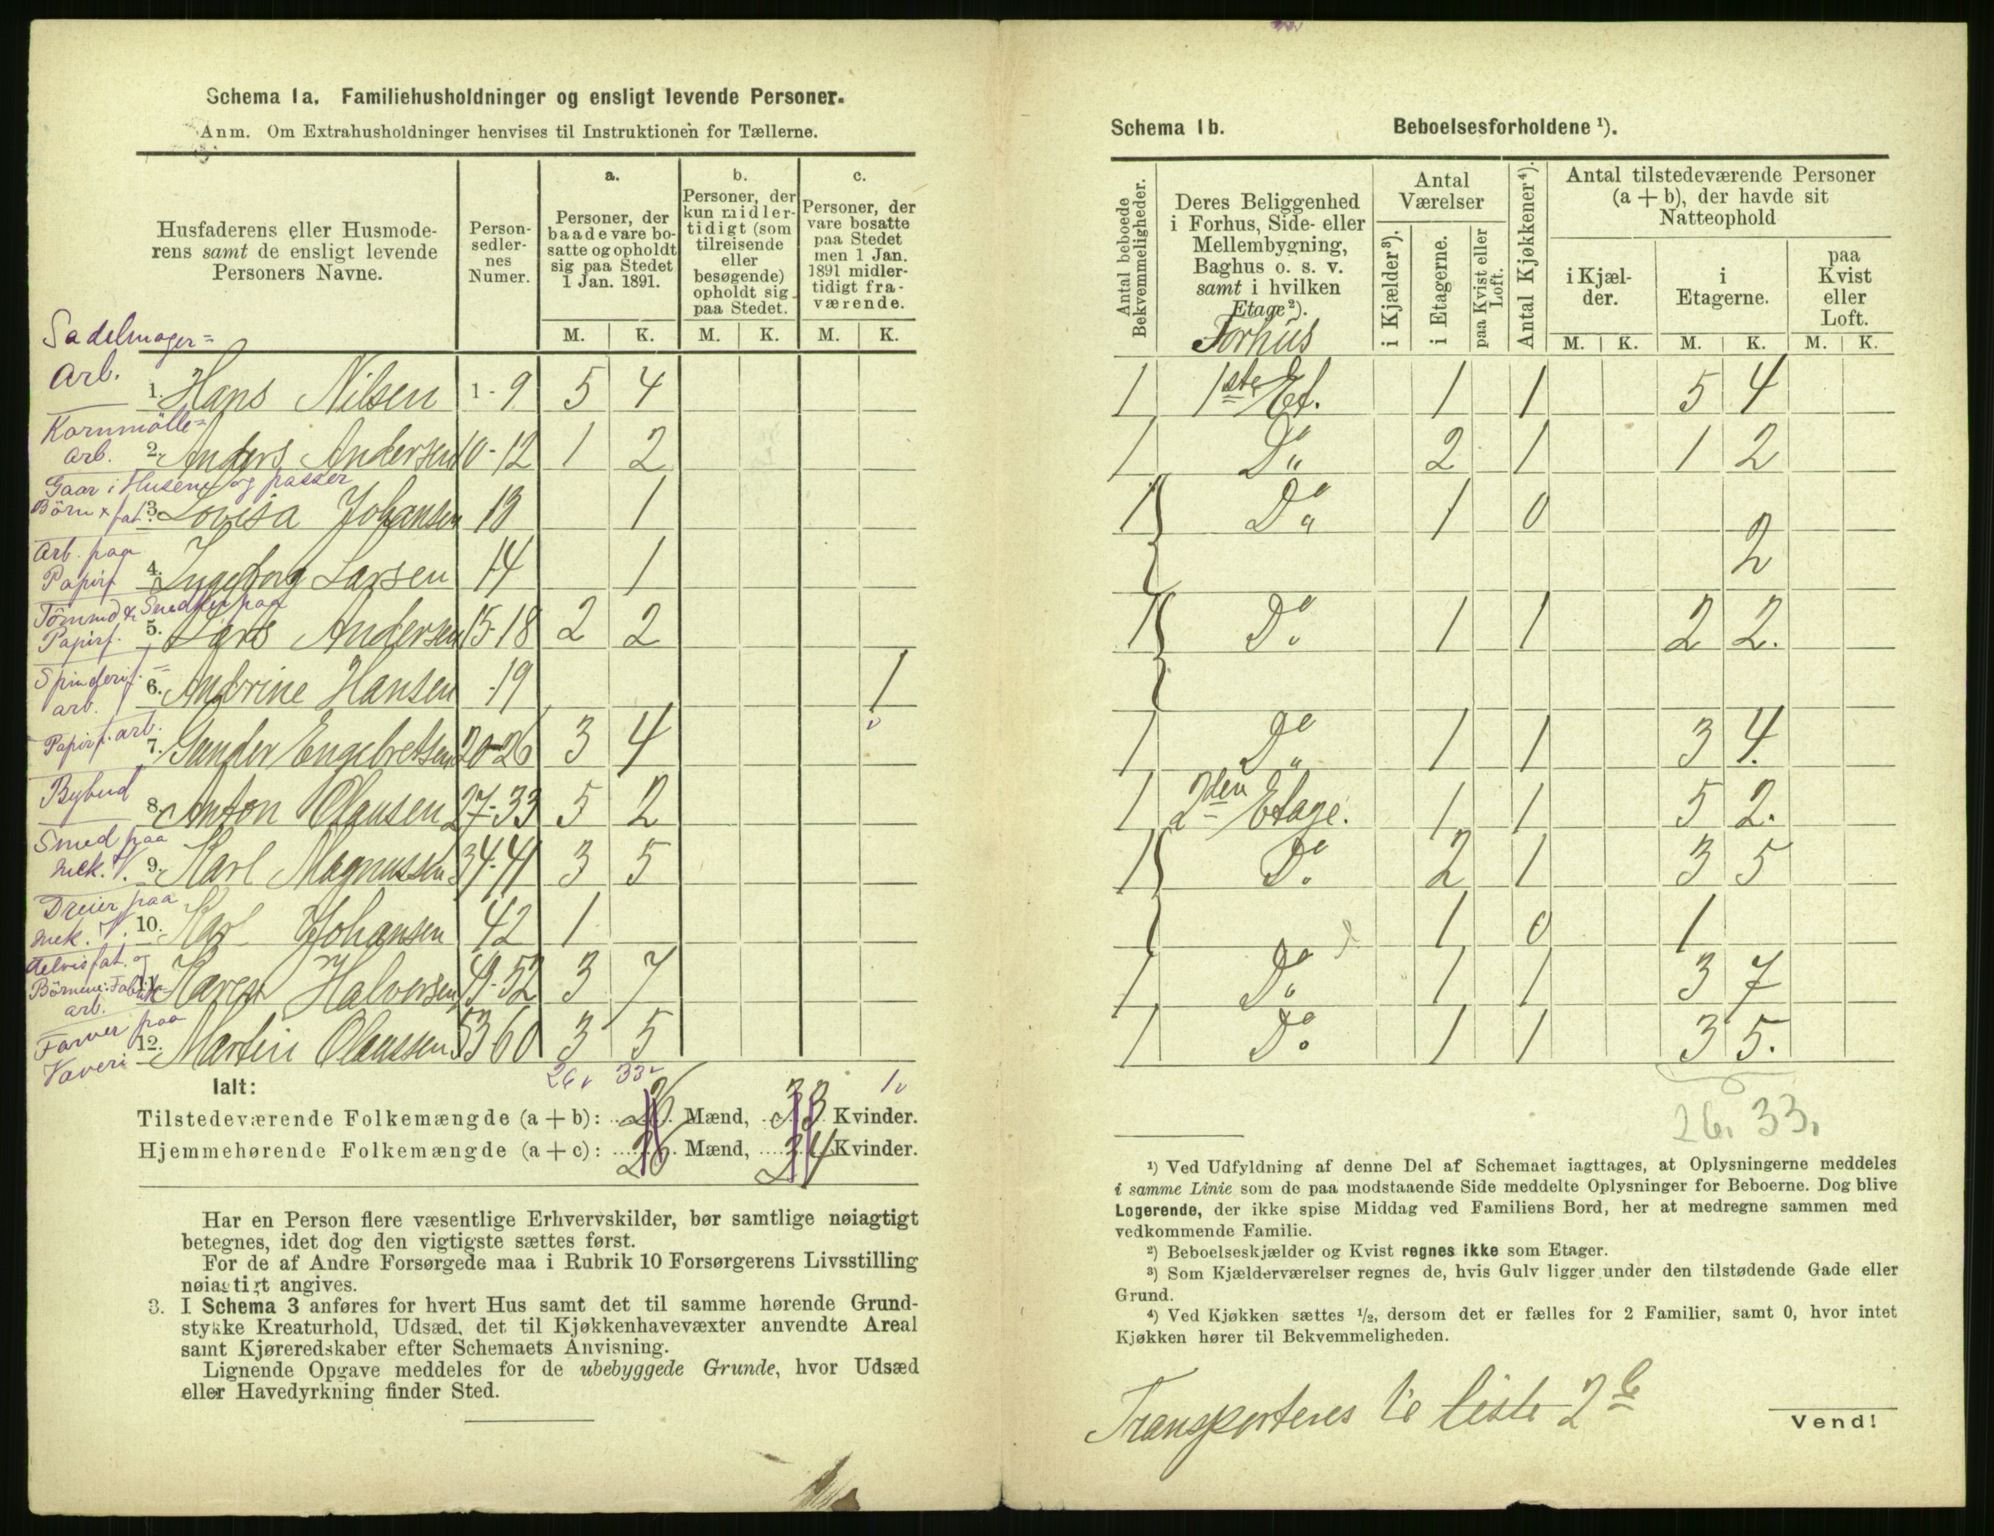 Schema 1a. Familiehusholdninger og ensligt levende Personer.
Anm. Om Extrahusholdninger henvises til Instruktionen for Tællerne.
Husfaderens eller Husmoderens samt de ensligt levende Personers Navne.
Personsedlernes Numer.
a.
Personer, der baade vare bosatte og opholdt sig paa Stedet 1 Jan. 1891.
b.
Personer, der kun midlertidigt (som tilreisende eller besøgende) opholdt sig paa Stedet.
c.
Personer, der vare bosatte paa Stedet men 1 Jan. 1891 midlertidigt fraværende.
M. K. M. K. M. K.
Sadelmager=
Arb.
1. Hans Nilsen 1-9 5 4
Kornmölle=
arb.
2. Anders Andersen 10-12 1 2
Gaar i Husene og passer
Börn x fat.
3. Lovisa Johansen 13 1
Arb. paa
Papirf
4. Ingeborg Larsen 14 1
Papirf.
5. Lars Andersen 15-18 2 2
Spinderif.=
arb.
6. Andrine Hansen 19 1
Papirf. arb.
7. Gunder Engebretsen 20-26 3 4
Bybud
8. Anton Olausen 27-33 5 2
Smed paa
mek. V.
9. Karl Magnussen 34-41 3 5
Dreier paa
mek. V.
10. Karl Johansen 42 1
arb.
11. Karen Halversen 49-52 3 7
Farver paa
Væveri
12. Martin Olaussen 53 60 3 5
26 v 33 v 1 v
Ialt:
Tilstedeværende Folkemængde (a + b): 26 Mænd, 33 Kvinder.
Hjemmehørende Folkemængde (a + c): 26 Mænd, 34 Kvinder.
Har en Person flere væsentlige Erhvervskilder, bør samtlige nøiagtigt
betegnes, idet dog den vigtigste sættes først.
For de af Andre Forsørgede maa i Rubrik 10 Forsørgerens Livsstilling
nøiagtigt angives.
3. I Schema 3 anføres for hvert Hus samt det til samme hørende Grund-
stykke Kreaturhold, Udsæd, det til Kjøkkenhavevæxter anvendte Areal
samt Kjøreredskaber efter Schemaets Anvisning.
Lignende Opgave meddeles for de ubebyggede Grunde, hvor Udsæd
eller Havedyrkning finder Sted.
Schema 1b. Beboelsesforholdene ¹).
Antal beboede Bekvemmeligheder.
Deres Beliggenhed i Forhus, Side- eller Mellembygning, Baghus o. s. v. samt i hvilken Etage²).
Forhus
Antal Værelser
i Kjælder³).
i Etagerne.
paa Kvist eller Loft.
Antal Kjøkkener⁴).
Antal tilstedeværende Personer (a + b), der havde sit Natteophold
i Kjælder.
i Etagerne.
paa Kvist eller Loft.
M. K. M. K. M. K.
1 1ste Et. 1 1 5 4
1 Do 2 1 1 2
1 Do 1 0
2
1 Do 1 1 2 2.
1 Do 1 1 3 4.
1 2den Etage. 1 1 5 2.
1 Do 2 1 3 5
1 0 1
1 Do 1 1 3 7
1 Do 1 1 3 5.
26. 33.
¹) Ved Udfyldning af denne Del af Schemaet iagttages, at Oplysningerne meddeles
i samme Linie som de paa modstaaende Side meddelte Oplysninger for Beboerne. Dog blive
Logerende, der ikke spise Middag ved Familiens Bord, her at medregne sammen med
vedkommende Familie.
²) Beboelseskjælder og Kvist regnes ikke som Etager.
³) Som Kjælderværelser regnes de, hvis Gulv ligger under den tilstødende Gade eller
Grund.
⁴) Ved Kjøkken sættes ½, dersom det er fælles for 2 Familier, samt 0, hvor intet
Kjøkken hører til Bekvemmeligheden.
Transporteres til liste 2
Vend!